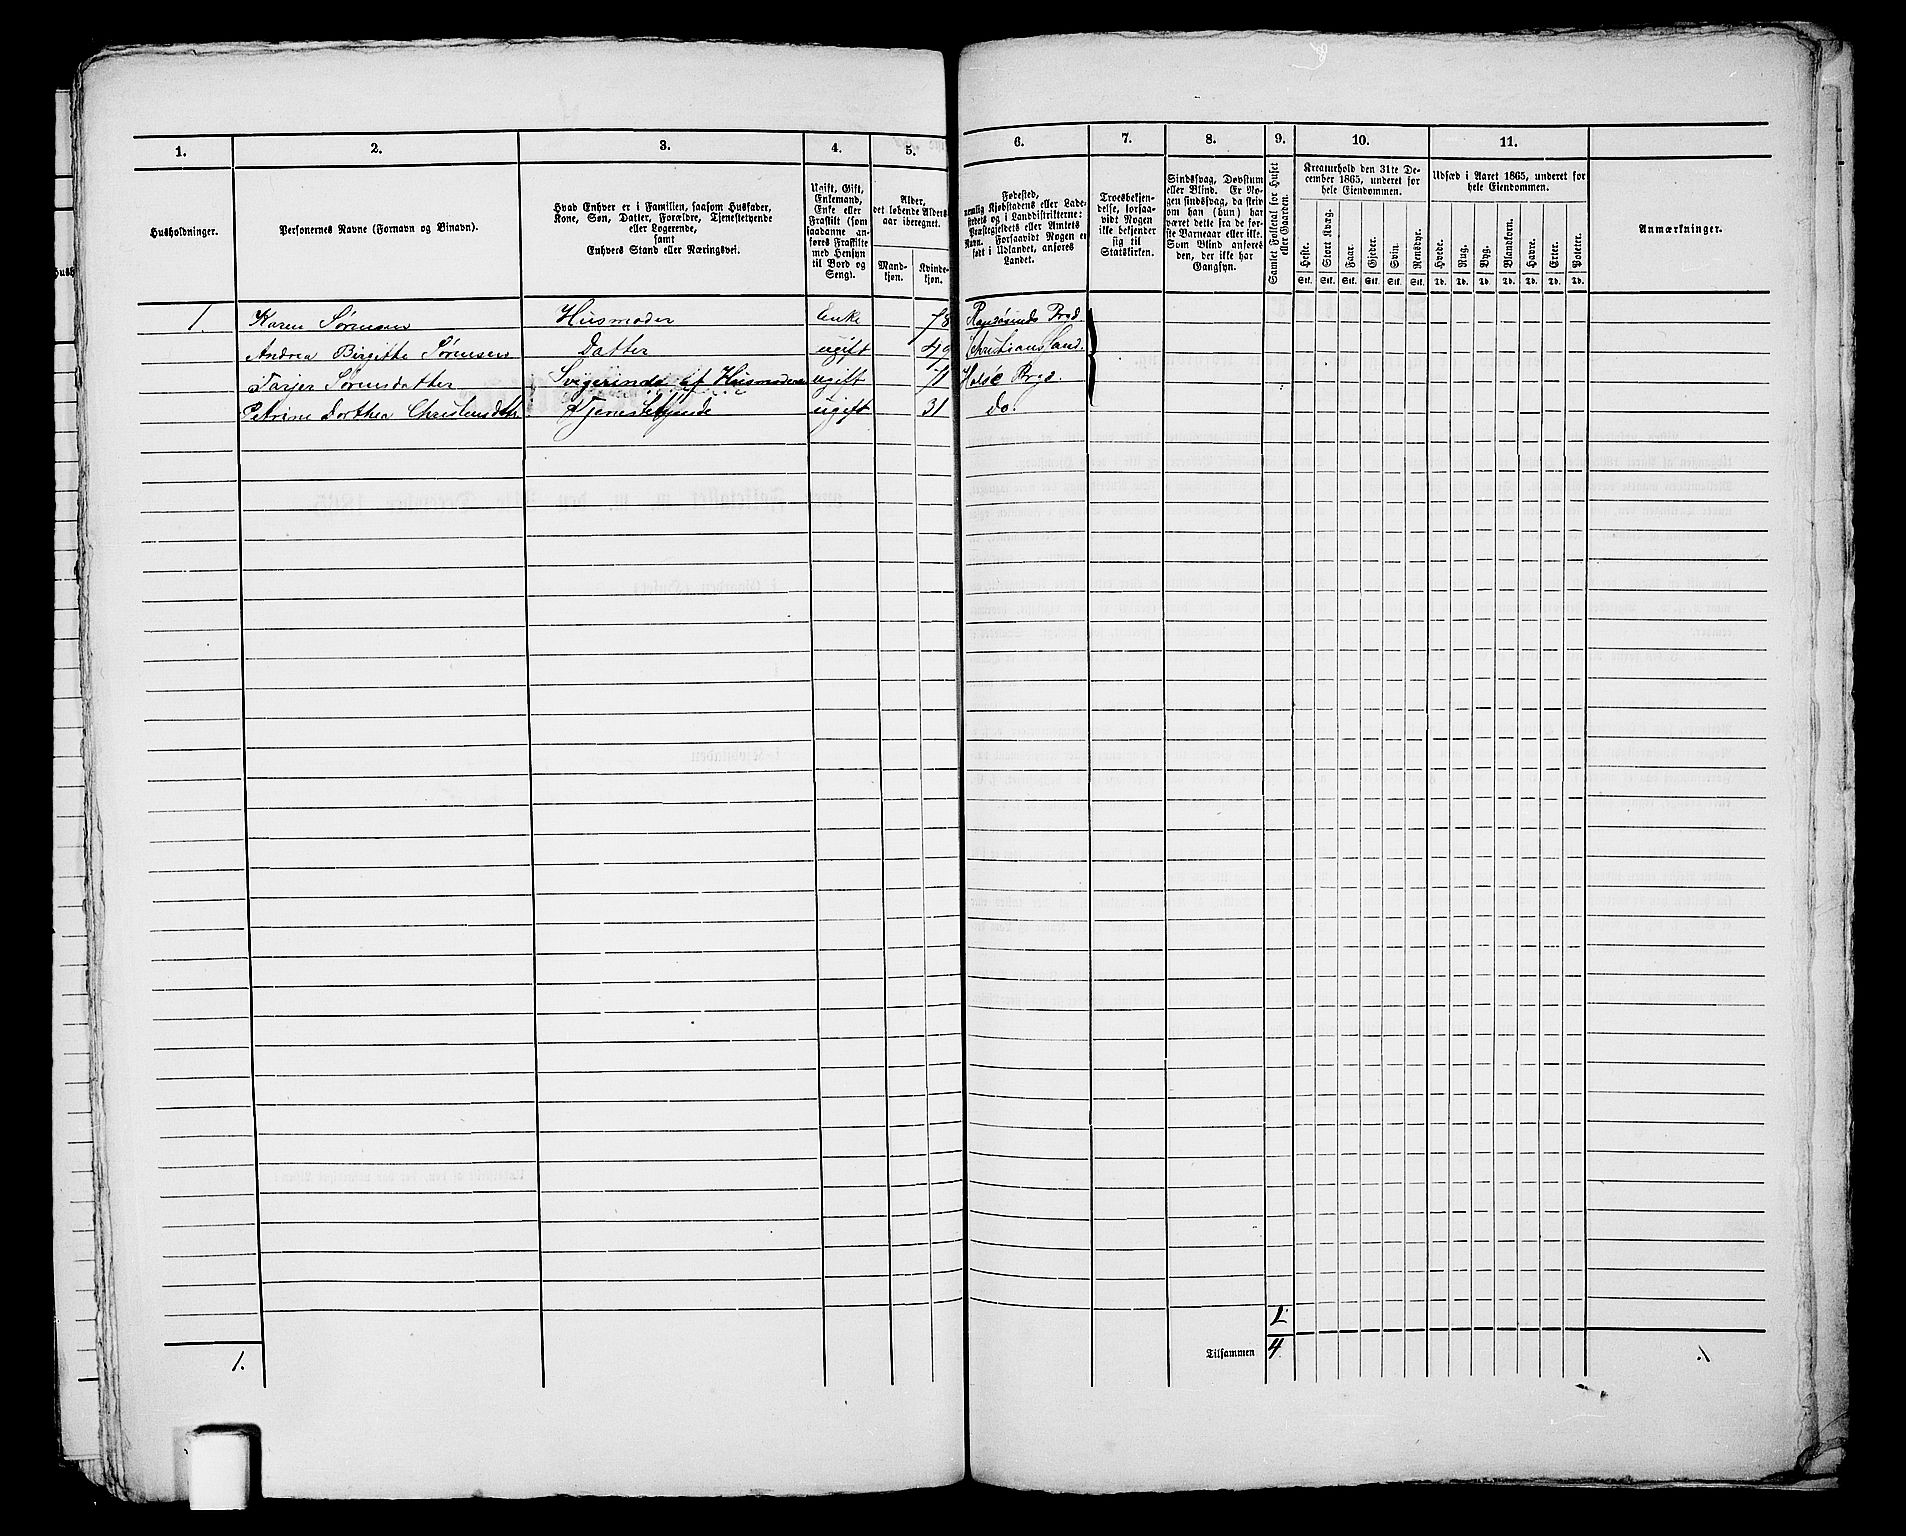 1. 2. 3. 4. 5. 6. 7. 8. 9. 10. 11.
Husholdninger.
Personernes Navne (Fornavn og Binavn).
Hvad Enhver er i Familien, saasom Husfader,
Kone, Søn, Datter, Forældre, Tjenestetyende
eller Logerende,
samt
Enhvers Stand eller Næringsvei.
Ugift, Gift,
Enkemand,
Enke eller
Fraskilt (som
saadanne an-
føres Fraskilte
med Hensyn
til Bord og
Seng).
Alder,
det løbende Alders-
aar iberegnet.
Mand-
kjøn.
Kvinde-
kjøn.
Fødested,
nemlig Kjøbstadens eller Lade-
stedets og i Landdistrikterne:
Præstegjeldets eller Amtets
Navn. Forsaavidt Nogen er
født i Udlandet, anføres
Landet.
Troesbekjen-
delse, forsaa-
vidt Nogen
ikke bekjender
sig til
Statskirken.
Sindssvag, Døvstum
eller Blind. Er No-
gen sindssvag, da skriv
om han (hun) har
været dette fra de før-
ste Barneaar eller ikke.
Som Blind anføres
den, der ikke har
Gangsyn.
Samlet Folketal for Huset
eller Gaarden.
Kreaturhold den 31te De-
cember 1865, underet for
hele Eiendommen.
Heste. Stort Kvæg. Faar. Gjeder. Svin. Rensdyr.
Stk. Stk. Stk. Stk. Stk. Stk.
Udsæd i Aaret 1865, underet for
hele Eiendommen.
Hvede. Rug. Byg. Blandkorn. Havre. Erter. Poteter.
Td. Td. Td. Td. Td. Td. Td.
Anmærkninger.
1. Karen Sørensen Husmoder Enke 78 Prgd.
Andrea Birgitte Sørensen Datter ugift 49 Christianssand.
Tarjer Sørensdatter Svigerinde af Husmoderen ugift 71 Halsø Prgd.
Petrine Dorthea Christensdtr. Tjenestetyende ugift 31 Do.
1.
Tilsammen 4